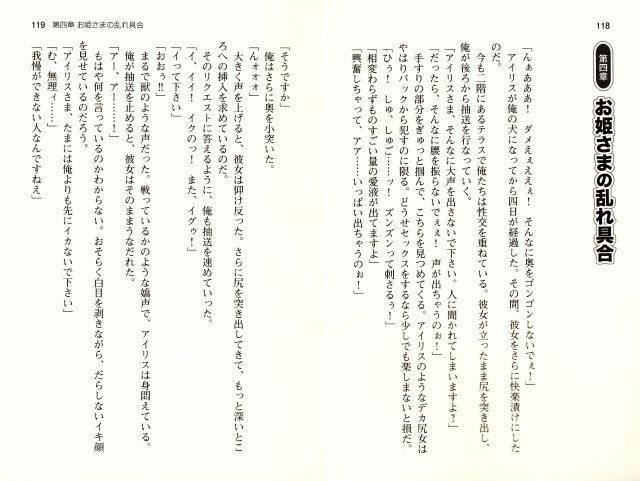 118
第四章
お姫さまの乱れ具合
「んぁあああ！　ダメえぇええぇ！　そんなに奥をゴンゴンしないでぇ！」
アイリスが俺の犬になってから四日が経過した。その間、彼女をさらに快楽漬けにした
のだ。
今も二階にあるテラスで俺たちは性交を重ねている。彼女が立ったまま尻を突き出し、
俺が後ろから抽送を行なっていく。
「アイリスさま、そんなに大声を出さないで下さい。人に聞かれてしまいますよ？」
「だったら、そんなに腰を振らないでぇえ！　声が出ちゃうのぉ！」
手すりの部分をぎゅっと掴んで、こちらを見つめてくる。アイリスのようなデカ尻女は
やはりバックから犯すのに限る。どうせセックスをするなら少しでも楽しまないと損だ。
「ひぅ！　しゅ、しゅごーッ！　ズンズンって刺さるぅ！」
「相変わらずものすごい量の愛液が出てますよ」
「興奮しちゃって、アア……いっぱい出ちゃうのぉ！」
119　第四章 お姫さまの乱れ具合
「そうですか」
俺はさらに奥を小突いた。
「んォォォ」
大きく声を上げると、彼女は仰け反った。さらに尻を突き出してきて、もっと深いとこ
ろへの挿入を求めているのだ。
そのリクエストに答えるように、俺も抽送を速めていった。
「イ、イイ！　イクのっ！　また、イグゥ！」
「イって下さい」
「おおぅ!!」
まるで獣のような声だった。戦っているかのような嬌声で、アイリスは身悶えている。
俺が抽送を止めると、彼女はそのままうなだれた。
「アー、アー……！」
もはや何を言っているのかわからない。おそらく白目を剥きながら、だらしないイキ顔
を見せているのだろう。
「アイリスさま、たまには俺よりも先にイカないで下さい」
「む、無理ィ……」
「我慢ができない人なんですねえ」